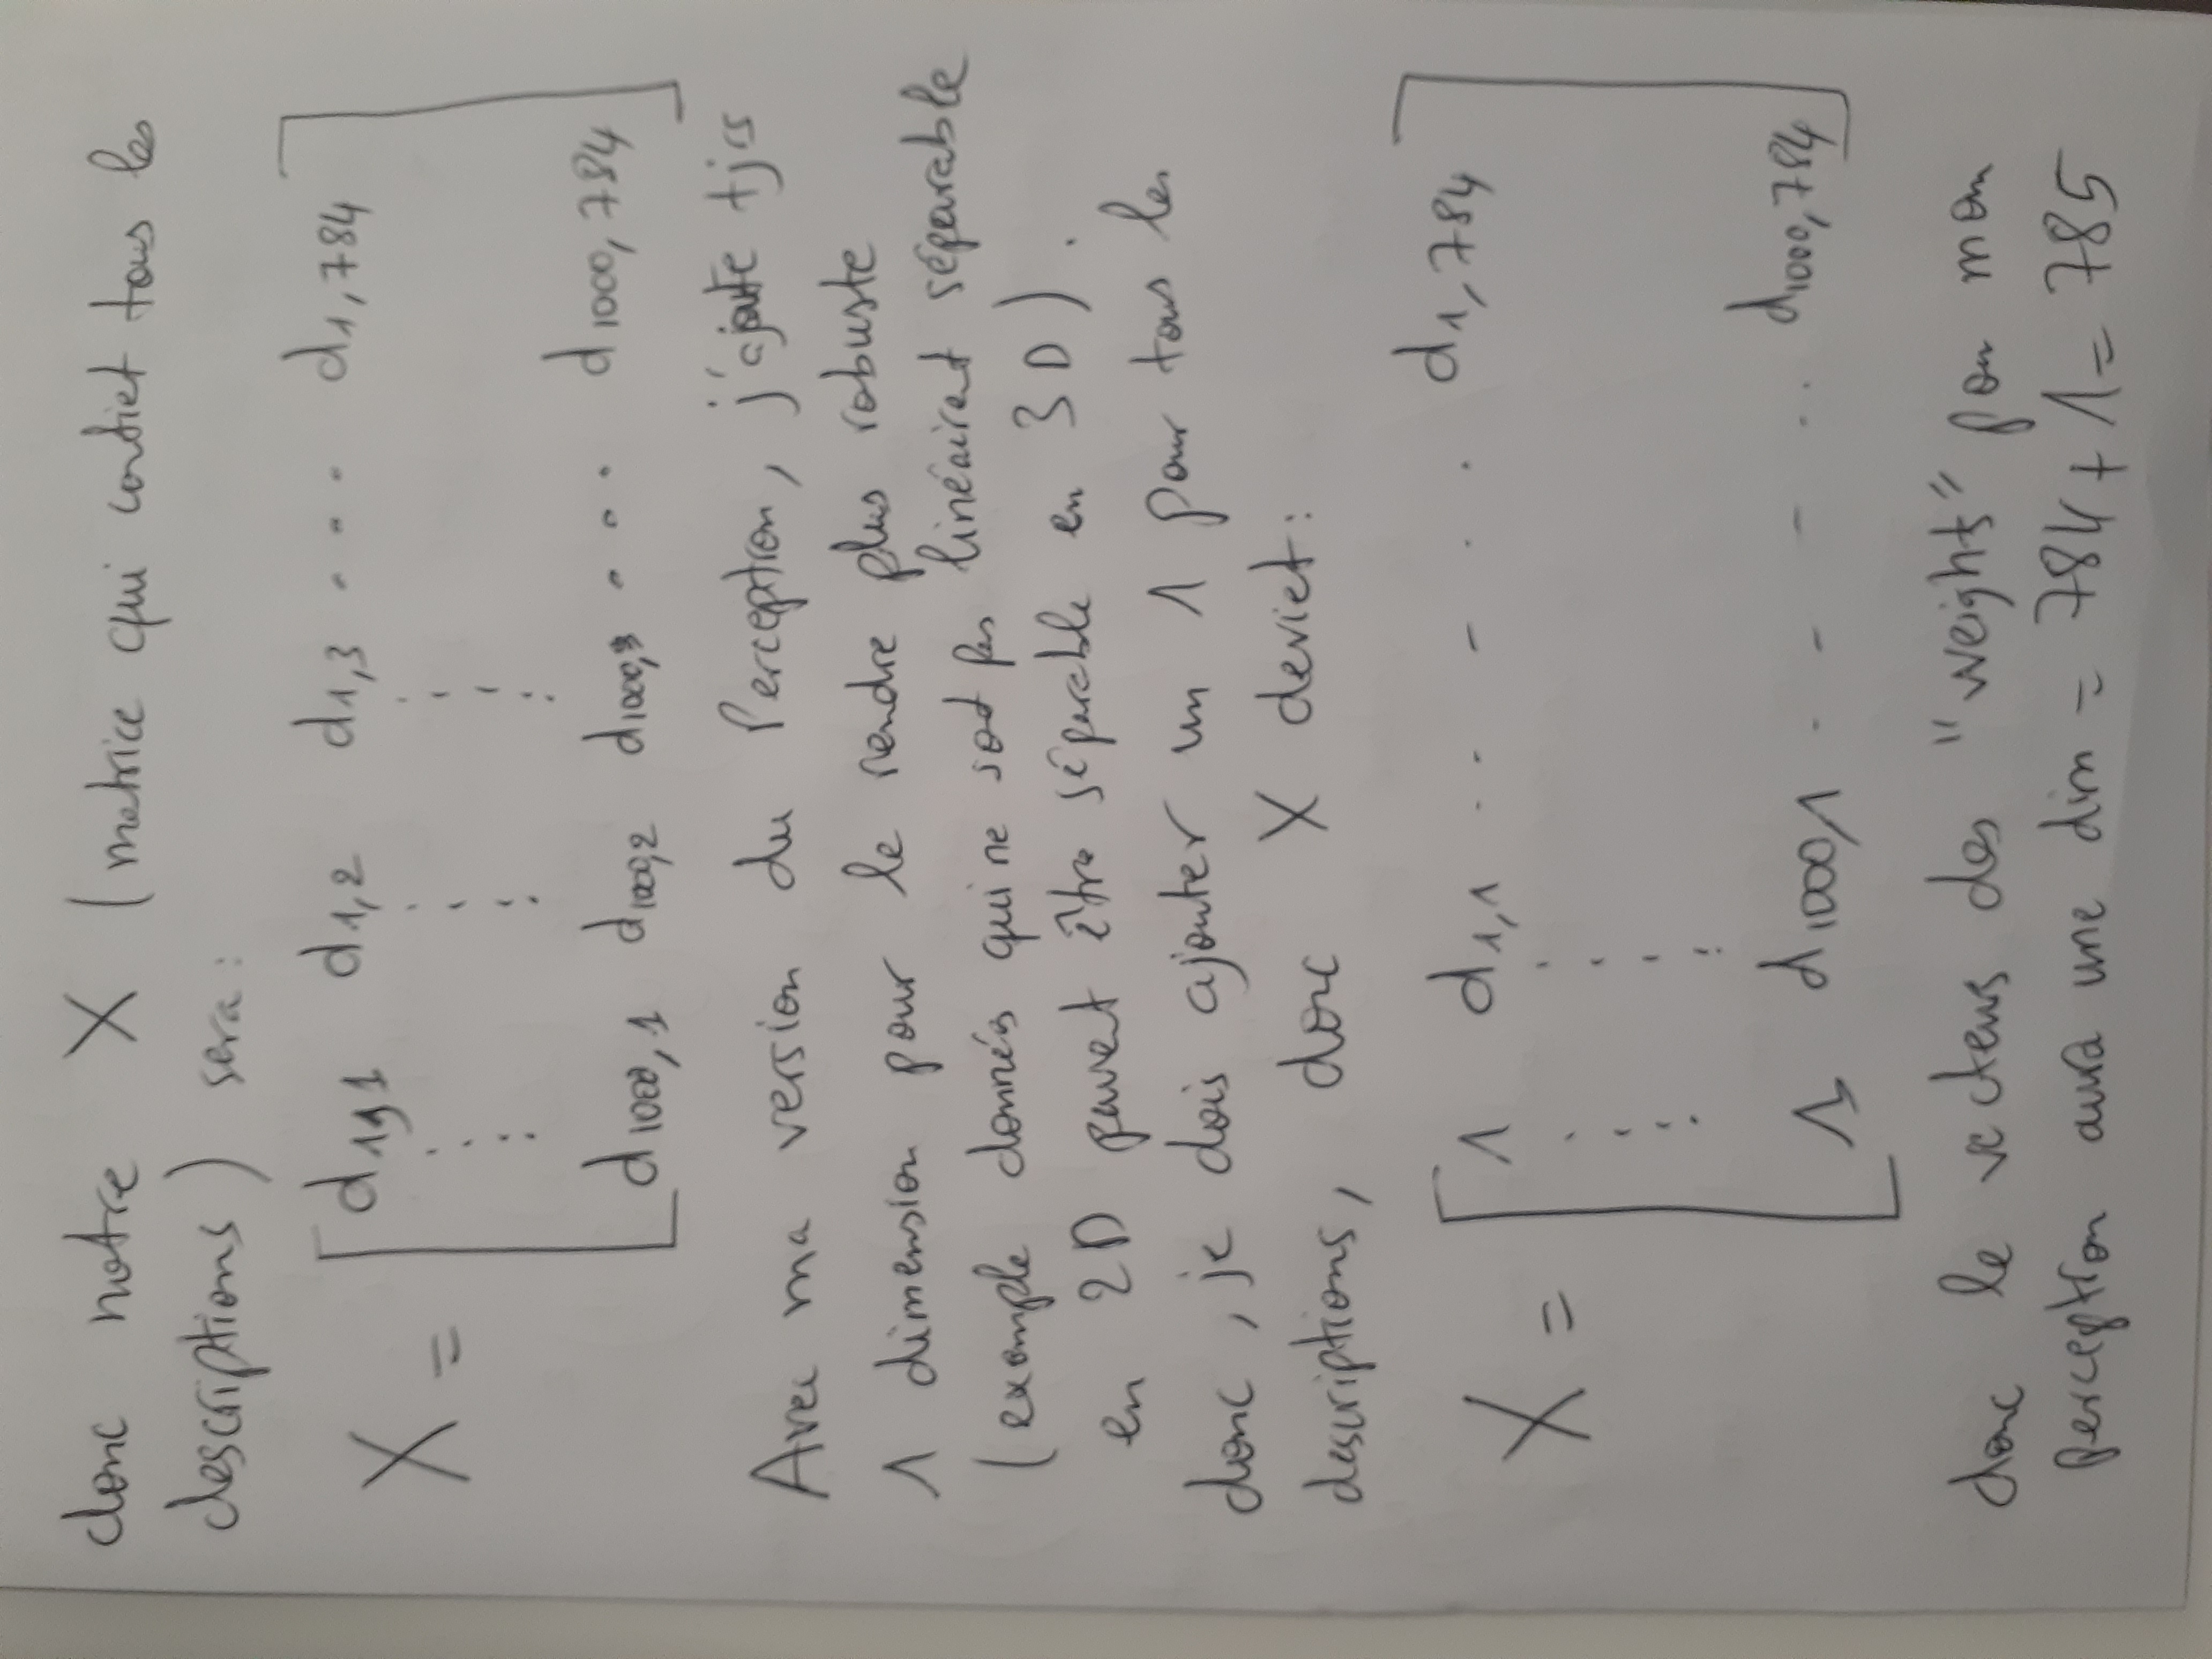 donc notre X (matrice qui contiet tous les
descriptions) sera :
X = [ d1,1 d1,2 d1,3 . . . d1,784
d1000,1 d1000,2 d1000,3 . . . d1000,784 ]
Avec ma version du Perceptron, j'ajoute tjrs
1 dimension pour le rendre plus robuste
(exemple données qui ne sont pas linéairent séparable
en 2D peuvent être séparable en 3D).
donc, je dois ajouter un 1 pour tous les
descriptions, donc X deviet :
X = [ 1 d1,1 . . - . . d1,784
1 d1000,1 . - - . . d1000,784 ]
donc le vecteurs des "weights" pour mon
perceptron aura une dim = 784 + 1 = 785